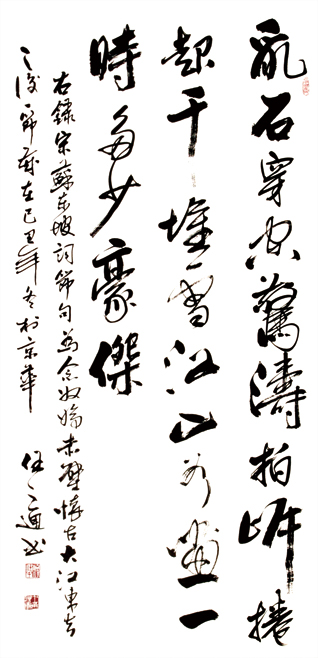 亂石穿空驚濤拍岸捲
起千堆雪江山如畫一
時多少豪傑
右錄宋蘇東坡詞節句為念奴嬌赤壁懷古大江東去
之後節歲在己丑年冬於京華